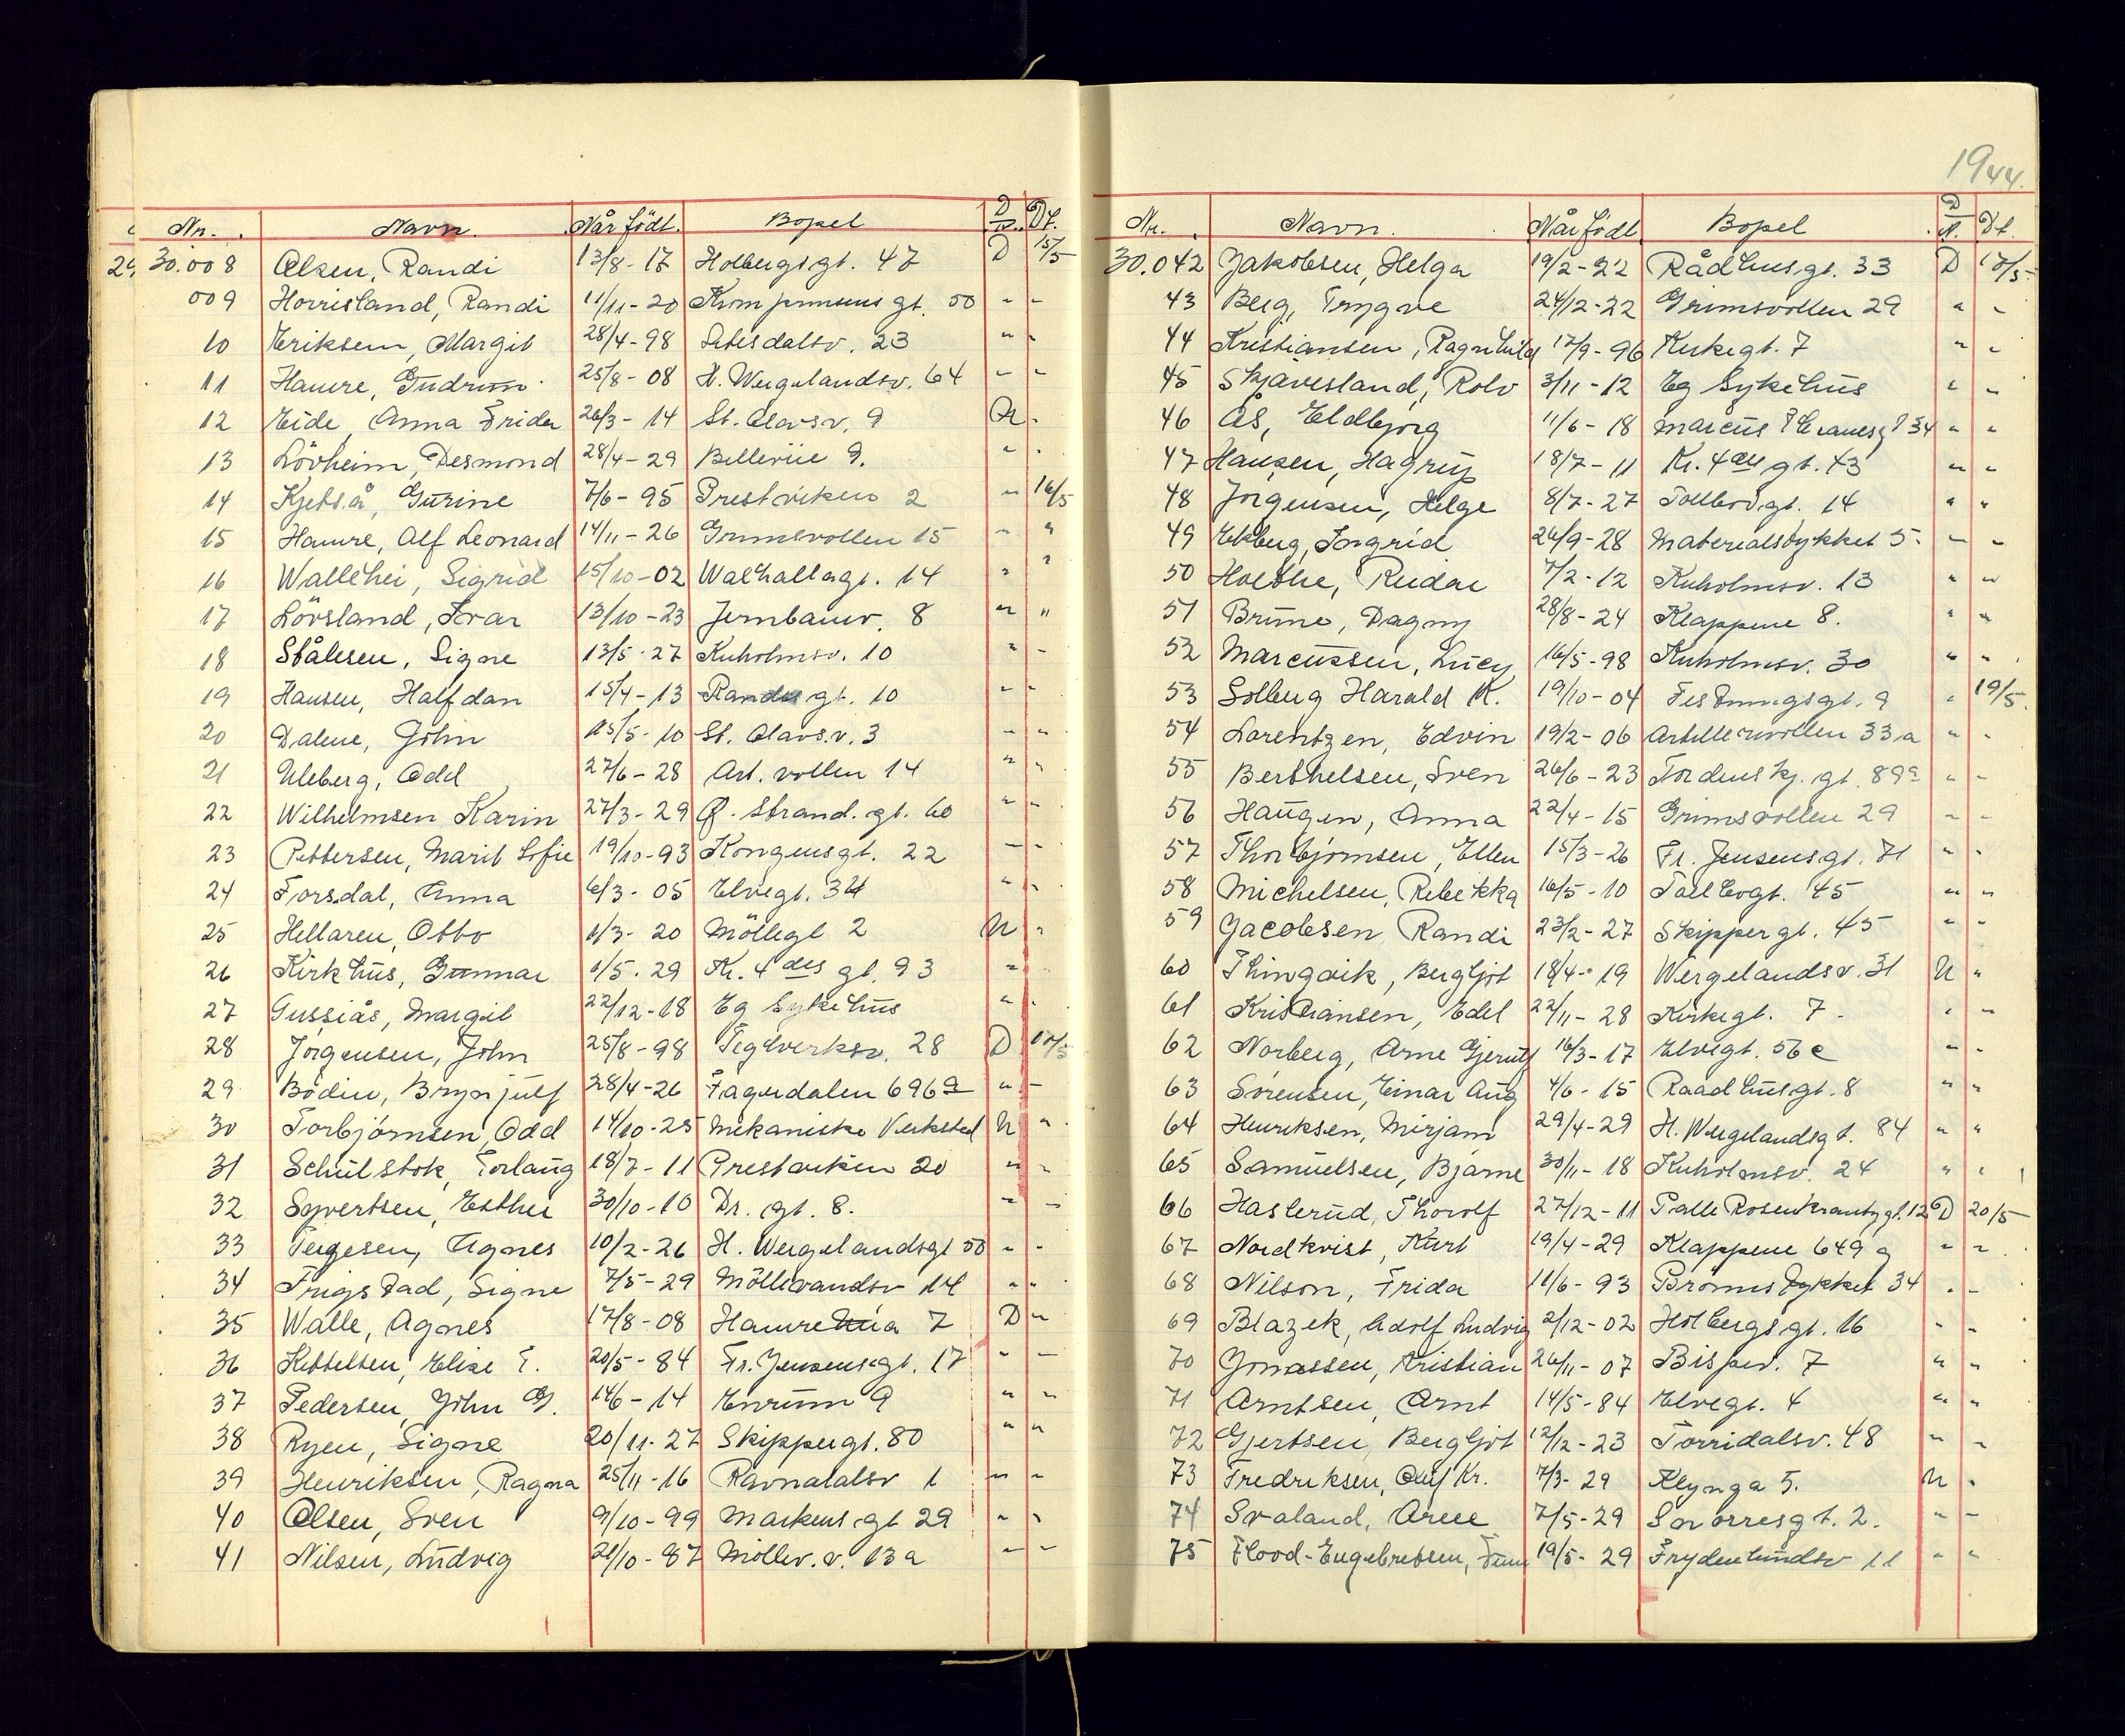 Nr. Navn. Når født. Bopel D/N. Dt.
30.008 Olsen, Randi 13/8-17 Holbergsgt. 47 D 15/5
009 Horrisland, Randi 11/11-20 gt. 50 " "
10 Eriksen, Margit 28/4-98 Setesdalsv. 23 " "
11 Hamre, Gudrun 25/8-08 H. Wergelandsv. 64 " "
12 Eide, Anna Frida 26/3-14 St. Olavsv. 9 N "
13 Lövheim, Desmond 28/4-29 Bellevue 9. " "
14 Kjetså, Gurine 7/6-95 Prestviken 2 " 16/5
15 Hamre, Alf Leonard 14/11-26 Grimsvollen 15 " "
16 Wallehei, Sigrid 15/10-02 Walhallagt. 14 " "
17 Lövsland, Ivar 13/10-23 Jernbanev. 8 " "
18 Stålesen, Signe 13/5-27 Kuholmsv. 10 " "
19 Hansen, Halfdan 15/4-13 gt. 10 " "
20 Dalene, John 15/5-10 St. Olavs.v. 3 " "
21 Uleberg, Odd 27/6-28 Art. vollen 14 " "
22 Wilhelmsen Karin 27/3-29 Ø. Strand. gt. 60 " "
23 Pettersen, Marit Sofie 19/10-93 Kongensgt. 22 " "
24 Forsdal, Anna 6/3-05 Elvegt. 34 " "
25 Hellaren, Otto 1/3-20 Möllegt 2 N "
26 Kirkhus, Gunnar 1/5-29 Kr. 4 des gt. 93 "
27 Gussiås, Margit 22/12-18 Eg Sykehus " "
28 Jörgensen, John 25/8-98 Teglverksv. 28 D 17/5
29 Bödin, Brynjulf 28/4-26 Fagerdalen 696a " "
30 Torbjörnsen, Odd 14/10-25 Mekaniske Verksted N "
31 Schulstok, Torlaug 18/7-11 Prestviken 20 " "
32 Syvertsen, Esther 30/10-10 Dr. gt. 8. " "
33 Tergesen, Agnes 10/2-26 H. Wergelandsgt 50 " "
34 Trigstad, Signe 7/5-29 Möllevandsv 14 " "
35 Walle, Agnes 17/8-08 7 D "
36 Kittelsen, Elise E. 20/5-84 Fr. Jensensgt. 17 " "
37 Pedersen, John G. 14/6-14 Enrum 9 " "
38 Ryen, Signe 20/11-27 Skippergt. 80 " "
39 Henriksen, Ragna 25/11-16 Ravnedalsv 1 " "
40 Olsen, Sven 9/10-99 Markens gt 29 " "
41 Nilsen, Ludvig 21/10-87 Möllev. v. 13a " "
1944.
Nr. Navn. Når født. Bopel D/N. Dt.
30.042 Jakobsen, Helga 19/2-22 Rådhusgt. 33 D 17/5
43 Berg, Trygve 24/12-22 Grimsvollen 29 " "
44 Kristiansen, Ragnhild 17/9-96 Kirkegt. 7 " "
45 Skjævesland, Rolv 3/11-12 Eg Sykehus " "
46 Ås, Eldbjørg 11/6-18 Marcus Thranesgt 34 " "
47 Hansen, Hagrup 18/7-11 Kr. 4 des gt. 43 " "
48 Jørgensen, Helge 8/7-27 Tollbodgt. 14 " "
49 Ekberg, Ingrid 26/9-28 Materialstykket 5. " "
50 Holthe, Reidar 7/2-12 Kuholmsv. 13 " "
51 Bruno, Dagny 28/8-24 Klappene 8. " "
52 Marcussen, Lucy 16/5-98 Kuholmsv. 30 " "
53 Solberg Harald K. 19/10-04 Festningsgt. 9 " 19/5.
54 Lorentzen, Edvin 19/2-06 Artillerivollen 33a " "
55 Berthelsen, Sven 26/6-23 Tordenskj. gt. 89a " "
56 Haugen, Anna 22/4-15 Grimsvollen 29 " "
57 Thorbjørnsen, Ellen 15/3-26 Fr. Jensensgt. 71 " "
58 Michelsen, Rebekka 16/5-10 Tollbogt. 45 " "
59 Jacobsen Randi 23/2-27 Skippergt. 45 " "
60 Thingvik, Bergljot 18/4-19 Wergelandsv. 31 N "
61 Kristiansen, Edel 22/11-28 Kirkegt. 7. " "
62 Norberg, Arne Gjerulf 16/3-17 Elvegt. 56c " "
63 Sørensen, Einar Aug 4/6-15 Raadhusgt. 8 " "
64 Henriksen, Mirjam 29/4-29 H. Wergelandsgt. 84 " "
65 Samuelsen, Bjarne 30/11-18 Kuholmsv. 24 " "
66 Haslerud, Thorolf 27/12-11 Palle Rosenkrantzgt. 12 D 20/5
67 Nordkvist, Kurt 19/4-29 Klappene 649a " "
68 Nilson, Frida 11/6-93 Brömstykket 34 " "
69 Blazek, Adolf Ludvig 2/12-02 Holbergsgt. 16 " "
70 Jonassen, Kristian 26/11-07 Bispev. 7 " "
71 Arntsen, Arnt 14/5-84 Elvegt. 4 " "
72 Gjertsen, Bergljot 12/12-23 Torridalsv. 48 " "
73 Fredriksen, Oluf Kr. 7/3-29 Klynga 5. N "
74 Svaland, Arne 7/5-29 Snorresgt. 2. " "
75 Flood-Engebretsen, Finn 19/5-29 Frydenlundsv 11 " "